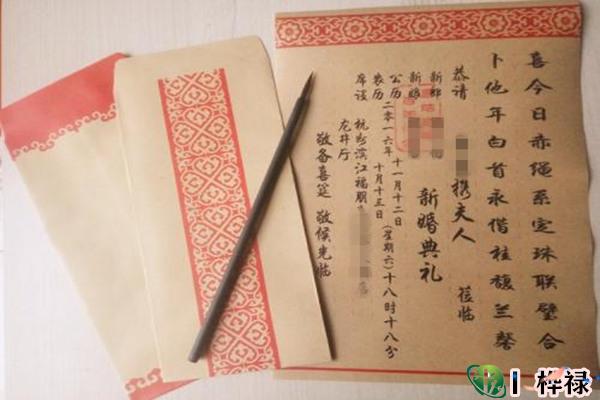 喜今日赤绳系定珠联璧合
卜他年白首永偕桂馥兰馨
恭请 携夫人 莅临
新郎
新娘
新婚典礼
公历 二零一六年 十一月十二日
农历 十月十三日(星期六)十八时十八分
席设 杭州滨江福朋 店
龙井厅
敬备喜筵 敬候光临
桦禄